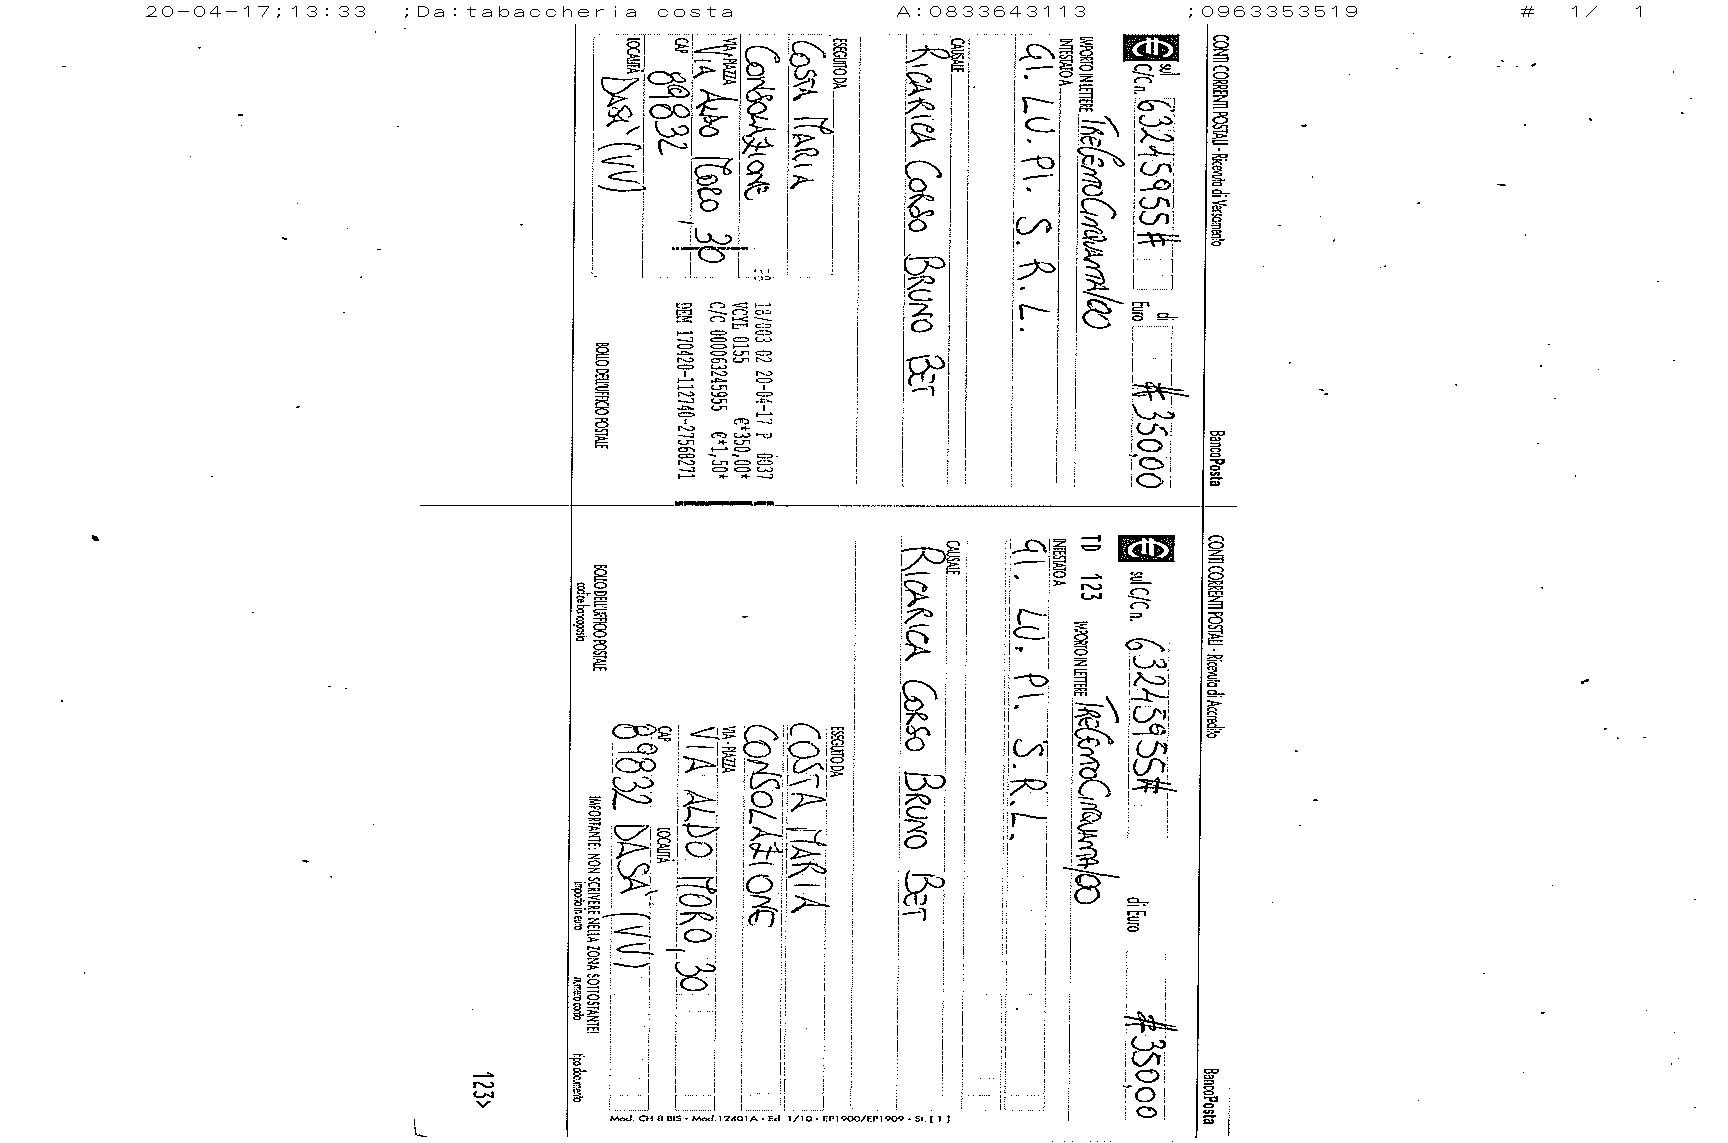 20-04-17;13:33 ;Da:tabaccheria costa A:0833643113 ;0963353519 # 1/ 1
CONTI CORRENTI POSTALI - Ricevuta di Versamento BancoPosta
sul C/C n. 63245955# di Euro #350,00
IMPORTO IN LETTERE TRECENTOCINQUANTA/00
INTESTATO A
GI. LU. PI. S. R. L.
CAUSALE
RICARICA CORSO BRUNO BET
ESEGUITO DA
COSTA MARIA
CONSOLAZIONE
VIA - PIAZZA
VIA ALDO MORO, 30
CAP
89832
LOCALITÀ
DASA' (VV)
18/003 02 20-04-17 P 0037
VCYL 0155 €*350,00*
C/C 000063245955 €*1,50*
DEM 170420-112740-27568271
BOLLO DELL'UFFICIO POSTALE
CONTI CORRENTI POSTALI - Ricevuta di Accredito BancoPosta
sul C/C n. 63245955# di Euro #350,00
TD 123 IMPORTO IN LETTERE TRECENTOCINQUANTA/00
INTESTATO A
GI. LU. PI. S.R.L.
CAUSALE
RICARICA CORSO BRUNO BET
ESEGUITO DA
COSTA MARIA
CONSOLAZIONE
VIA - PIAZZA
VIA ALDO MORO, 30
CAP LOCALITÀ
89832 DASA' (VV)
BOLLO DELL'UFFICIO POSTALE
codice bancoposta
IMPORTANTE: NON SCRIVERE NELLA ZONA SOTTOSTANTE!
importo in euro numero conto tipo documento
123>
Mod. CH 8 BIS - Mod.12401A - Ed. 1/10 - EP1900/EP1909 - St. [ 1 ]